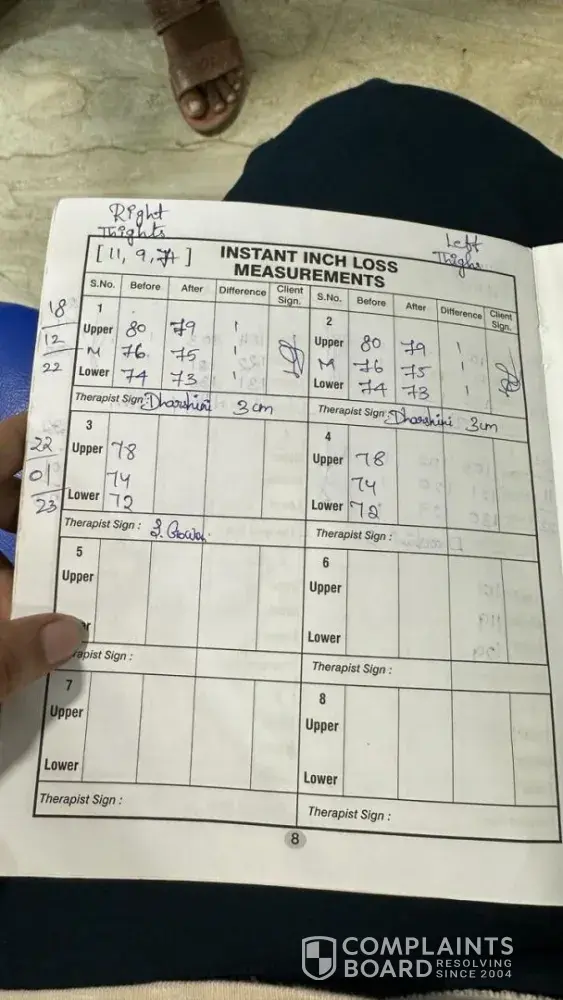 Right
Thights
Left
Thighs
[ 11, 9, 7 ]
INSTANT INCH LOSS
MEASUREMENTS
S.No. Before After Difference Client Sign. S.No. Before After Difference Client Sign.
18
12
22
1
Upper 80 79 1
M 76 75 1
Lower 74 73 1
Therapist Sign : Dharshini 3 cm
2
Upper 80 79 1
M 76 75 1
Lower 74 73 1
Therapist Sign : Dharshini 3 cm
22
01
23
3
Upper 78
74
Lower 72
Therapist Sign :
4
Upper 78
74
Lower 72
Therapist Sign :
5
Upper
Therapist Sign :
6
Upper
Lower
Therapist Sign :
7
Upper
Lower
Therapist Sign :
8
Upper
Lower
Therapist Sign :
8
COMPLAINTS
BOARD RESOLVING
SINCE 2004